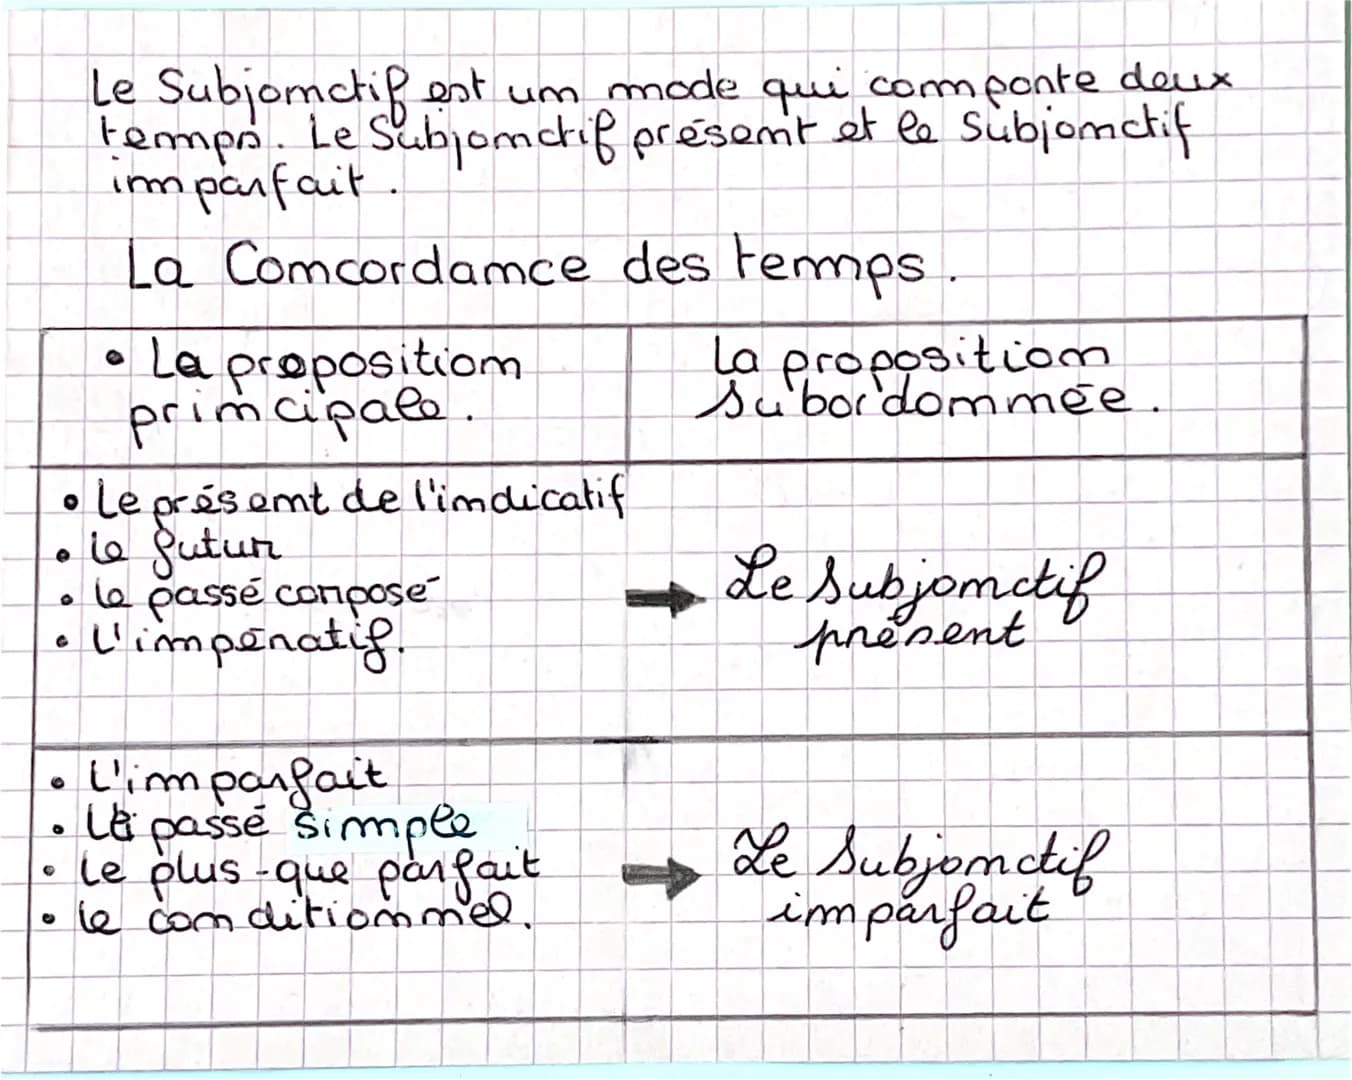 Le Subjonctif est un mode qui comporte deux
temps. Le Subjonctif présent et le Subjonctif
imparfait.
La Concordance des temps.
• La proposition
principale.
La proposition
subordonnée.
• Le présent de l'indicatif
• le futur
• le passé composé
• L'impératif.
➡ Le Subjonctif
présent
• L'imparfait
• Le passé simple
• Le plus-que parfait
• le conditionnel.
➡ Le Subjonctif
imparfait